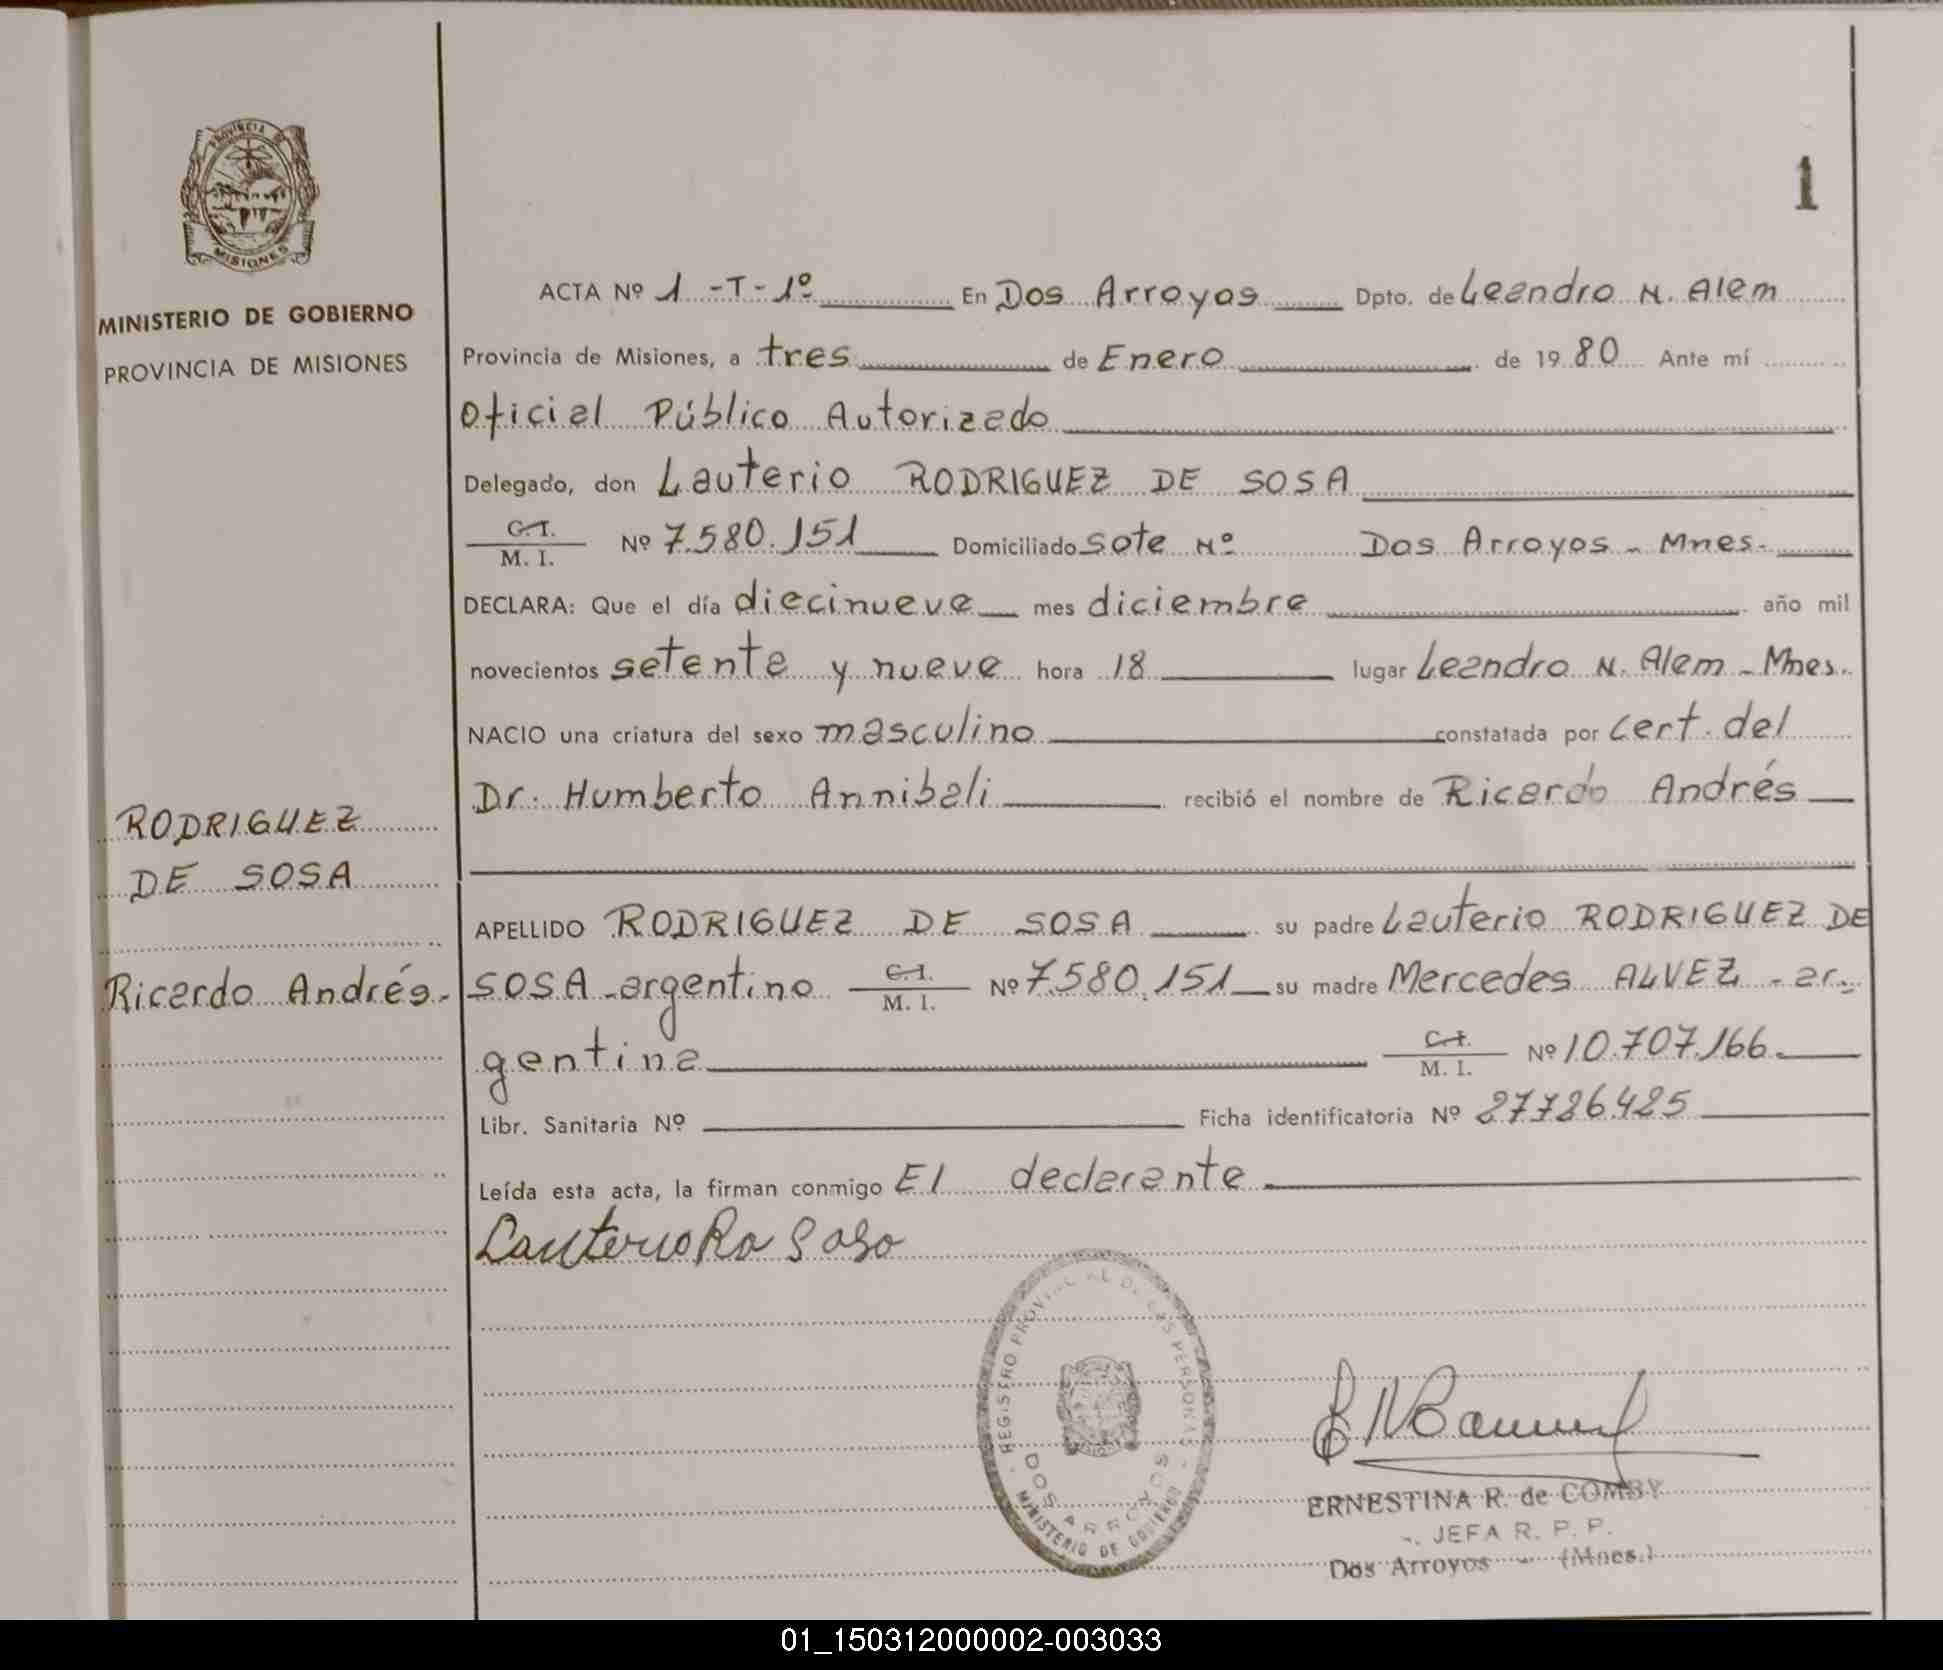 PROVINCIA DE
MISIONES
MINISTERIO DE GOBIERNO
PROVINCIA DE MISIONES
RODRIGUEZ
DE SOSA
Ricardo Andrés.
1
ACTA Nº 1 -T- 1º En Dos Arroyos Dpto. de Leandro N. Alem
Provincia de Misiones, a tres de Enero de 1980 Ante mí
Oficial Público Autorizado
Delegado, don Lauterio RODRIGUEZ DE SOSA
C.I.
M. I. Nº 7.580.151 Domiciliado Sote Nº Dos Arroyos - Mnes.
DECLARA: Que el día diecinueve mes diciembre año mil
novecientos setenta y nueve hora 18 lugar Leandro N. Alem - Mnes.
NACIO una criatura del sexo masculino constatada por cert. del
Dr. Humberto Annibali recibió el nombre de Ricardo Andrés
APELLIDO RODRIGUEZ DE SOSA su padre Lauterio RODRIGUEZ DE
SOSA - argentino C.I. M. I. Nº 7.580.151 su madre Mercedes ALVEZ - ar-
gentina C.I. M. I. Nº 10.707.166
Libr. Sanitaria Nº Ficha identificatoria Nº 27726425
Leída esta acta, la firman conmigo El declarante
Lauterio Ro Soso
REGISTRO PROVINCIAL DE LAS PERSONAS
DOS ARROYOS
MINISTERIO DE GOBIERNO
ERNESTINA R. de COMBY
JEFA R. P. P.
Dos Arroyos - (Mnes.)
01_150312000002-003033